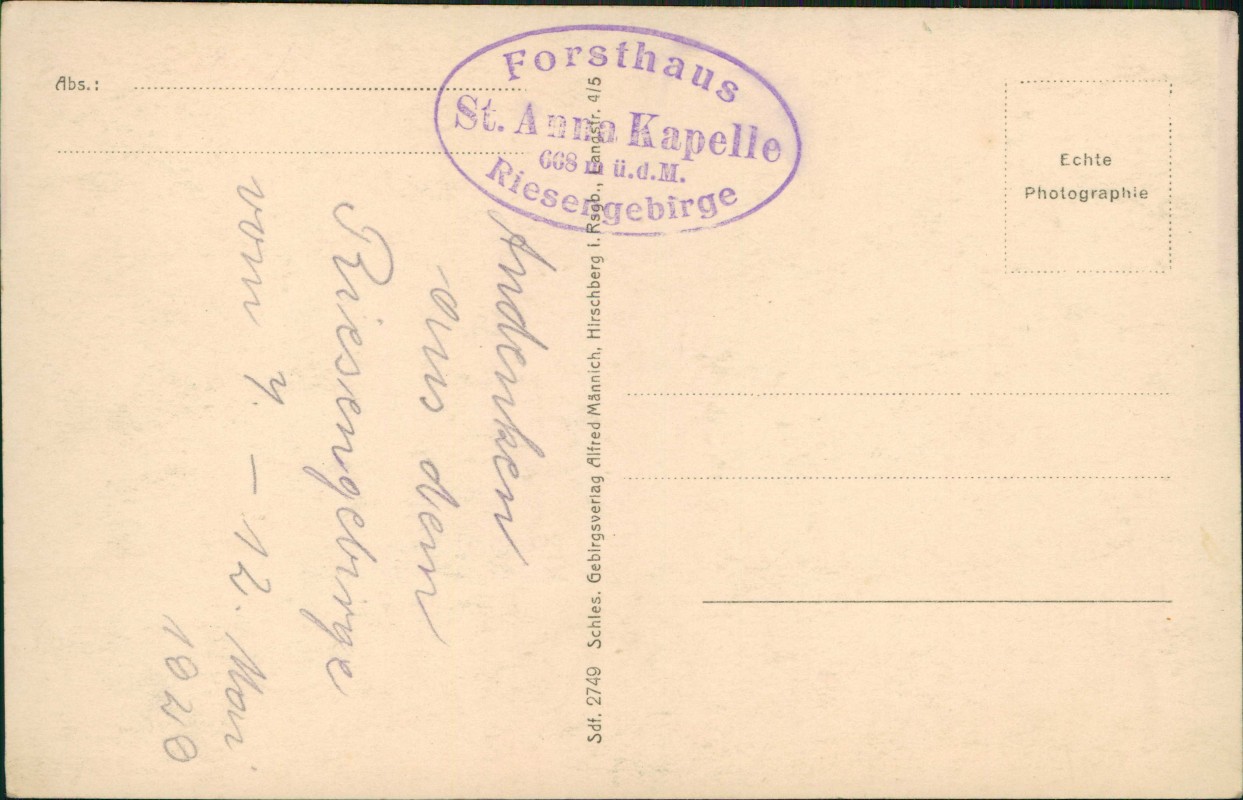 Abs.:
Forsthaus
St. Anna Kapelle
668 m ü.d.M.
Riesengebirge
Echte
Photographie
Andenken
aus dem
Riesengebirge
vom 7. – 12. Mai
Sdf. 2749 Schles. Gebirgsverlag Alfred Männich, Hirschberg i. Rsgb., Langstr. 4/5